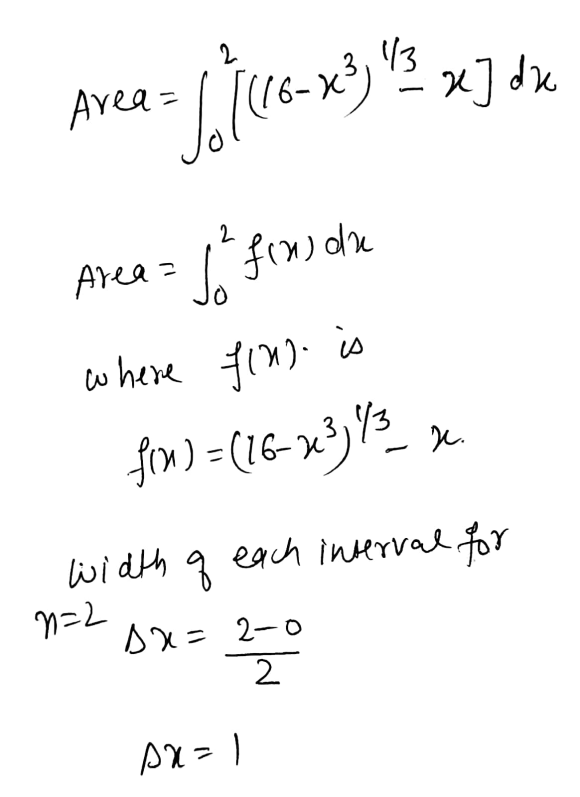 Area = ∫₀² [(16-x³)^1/3 - x] dx
Area = ∫₀² f(x) dx
where f(x). is
f(x) = (16-x³)^1/3 - x.
Width of each interval for
n=2 Δx = 2-0
2
Δx = 1